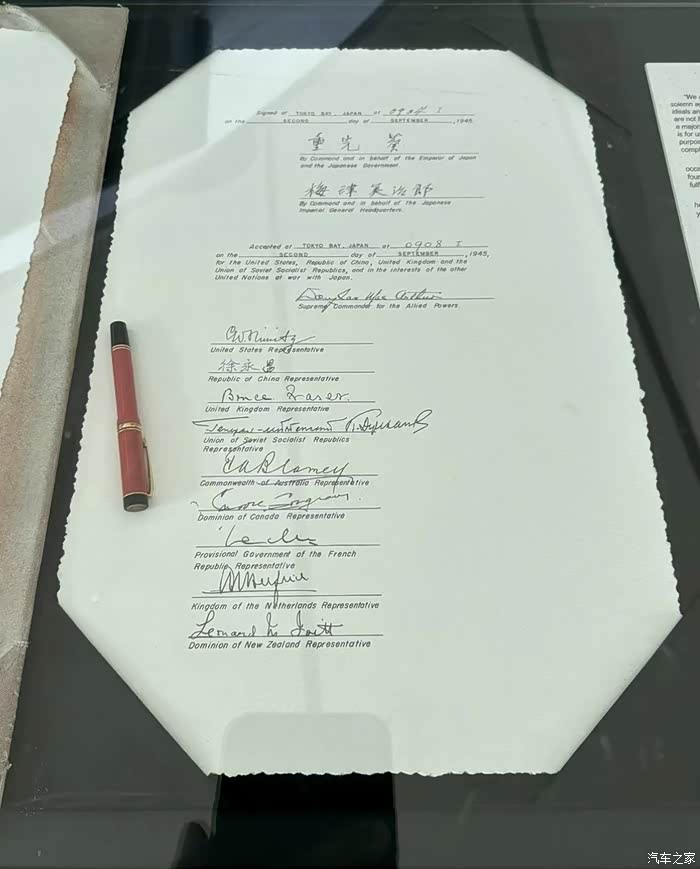 Signed at TOKYO BAY, JAPAN at 0904 I
on the SECOND day of SEPTEMBER, 1945
重光葵
By Command and in behalf of the Emperor of Japan
and the Japanese Government.
梅津美治郎
By Command and in behalf of the Japanese
Imperial General Headquarters.
Accepted at TOKYO BAY, JAPAN at 0908 I
on the SECOND day of SEPTEMBER, 1945,
for the United States, Republic of China, United Kingdom and the
Union of Soviet Socialist Republics, and in the interests of the other
United Nations at war with Japan.
Douglas MacArthur
Supreme Commander for the Allied Powers.
C.W. Nimitz
United States Representative
徐永昌
Republic of China Representative
Bruce Fraser.
United Kingdom Representative
Union of Soviet Socialist Republics
Representative
T.A. Blamey
Commonwealth of Australia Representative
Dominion of Canada Representative
Provisional Government of the French
Republic Representative
Kingdom of the Netherlands Representative
Leonard M Isitt
Dominion of New Zealand Representative
"We
solemn a
ideals an
are not
a major
is for us
purpos
compl
occa
foun
fulf
汽车之家